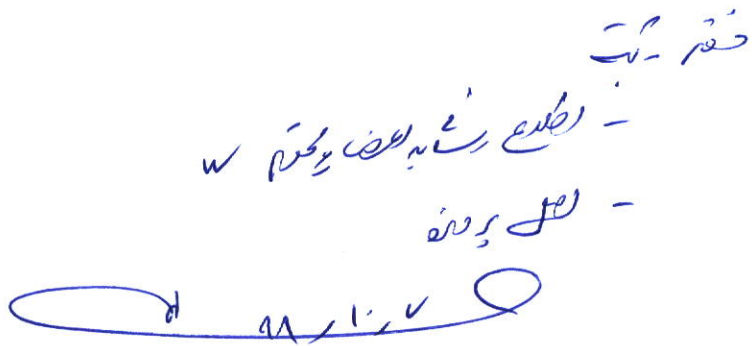 دفتر - ثبت
- اطلاع رسانی به اعضای محترم
- اصل پرونده
۹۸/۱۰/۷